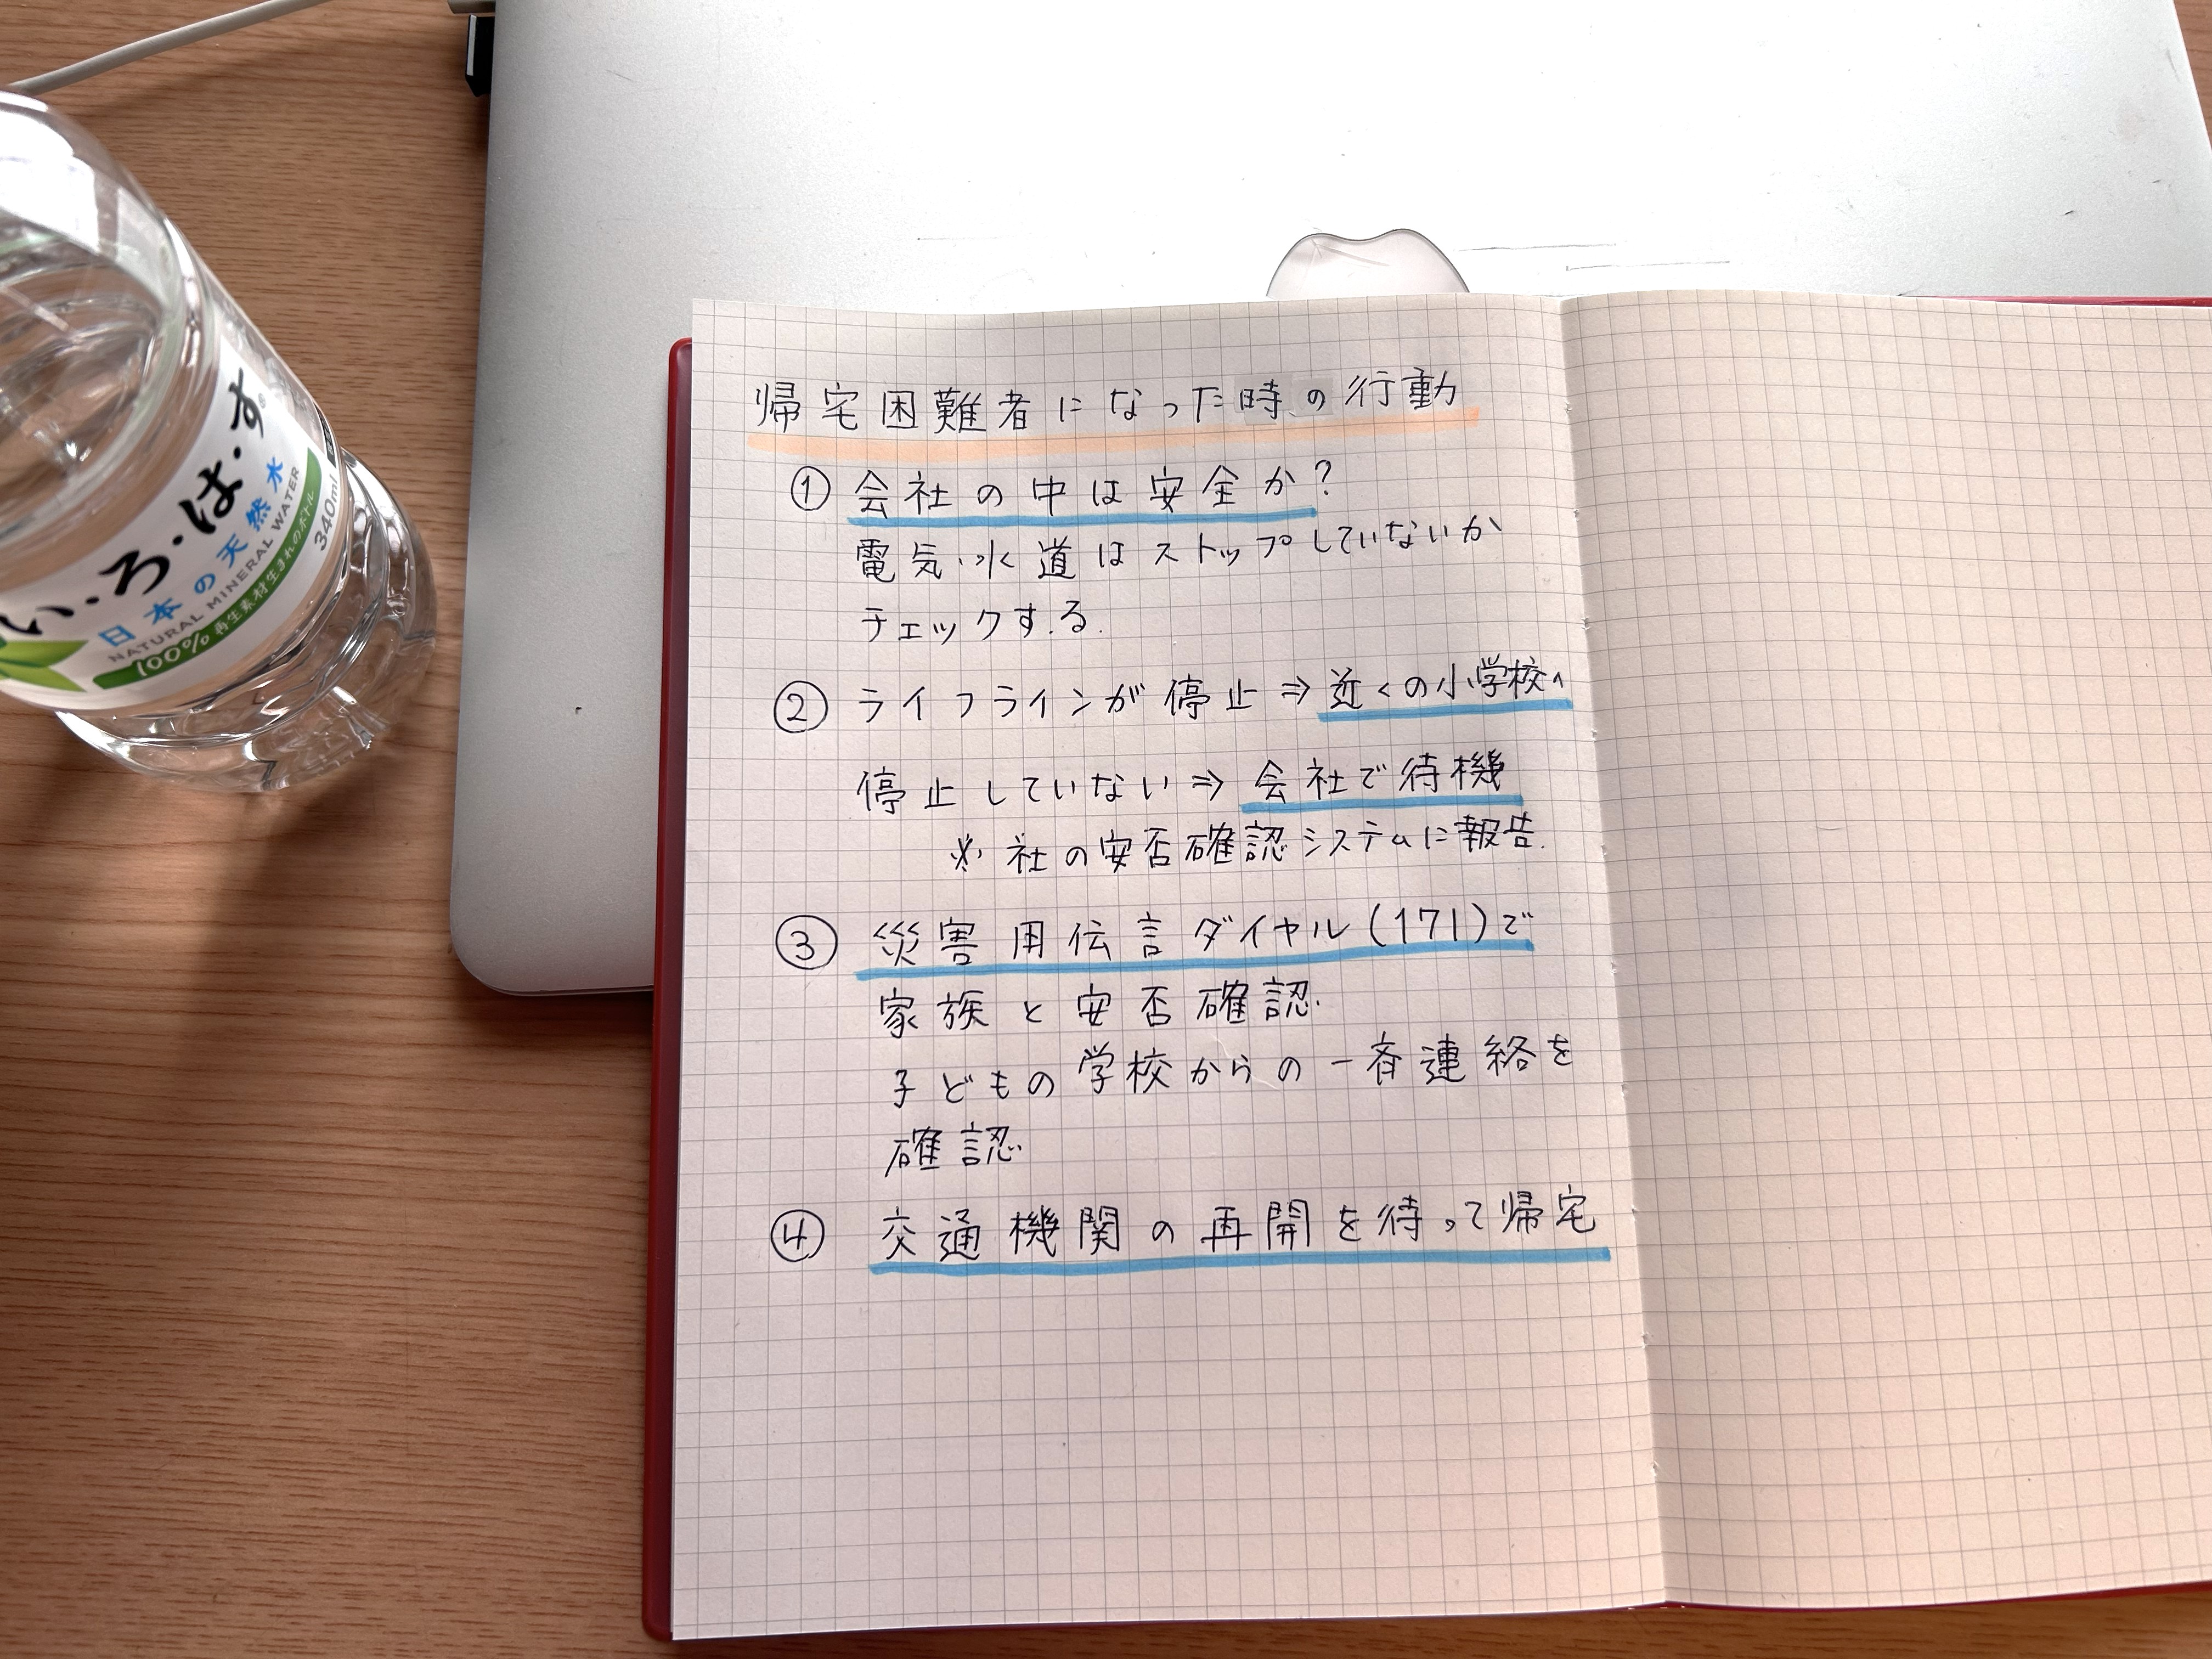 い・ろ・は・す
日本の天然水
NATURAL MINERAL WATER
100% 再生素材生まれのボトル
340ml
帰宅困難者になった時の行動
① 会社の中は安全か?
電気・水道はストップしていないか
チェックする.
② ライフラインが停止⇒近くの小学校へ
停止していない⇒会社で待機
※ 社の安否確認システムに報告.
③ 災害用伝言ダイヤル(171)で
家族と安否確認.
子どもの学校からの一斉連絡を
確認.
④ 交通機関の再開を待って帰宅